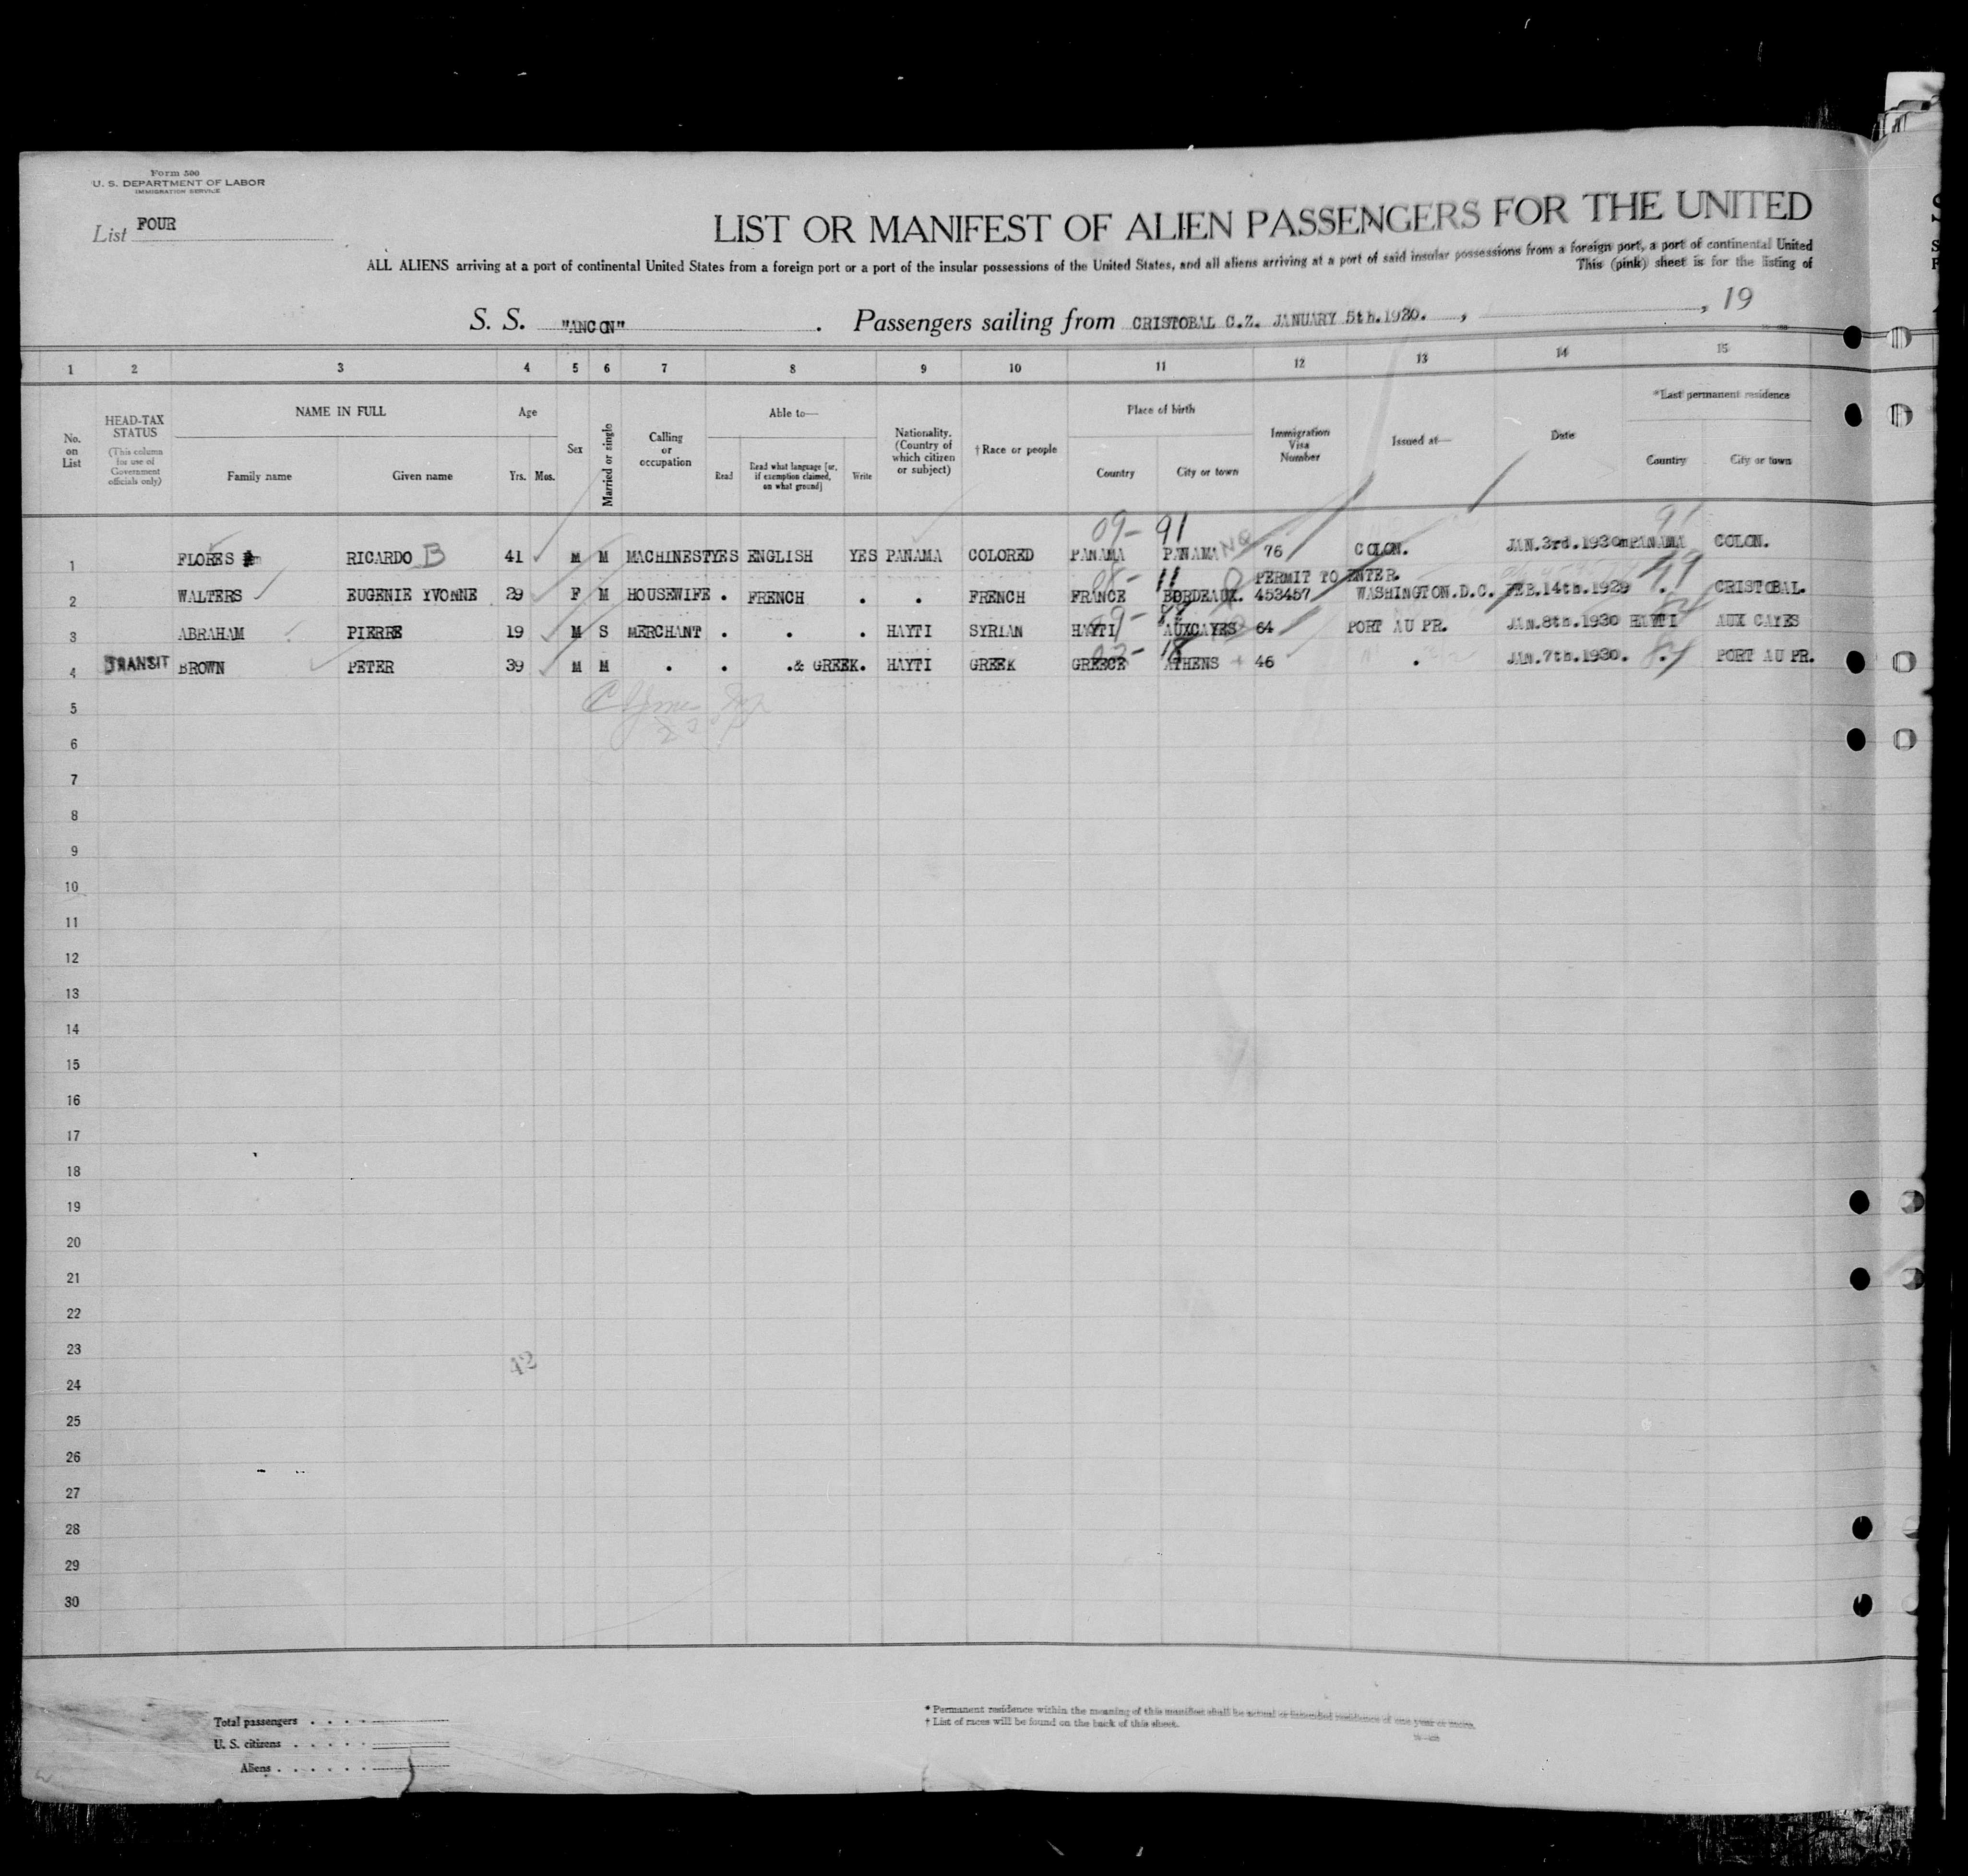 Form 500
U. S. DEPARTMENT OF LABOR
IMMIGRATION SERVICE
List FOUR
LIST OR MANIFEST OF ALIEN PASSENGERS FOR THE UNITED
ALL ALIENS arriving at a port of continental United States from a foreign port or a port of the insular possessions of the United States, and all aliens arriving at a port of said insular possessions from a foreign port, a port of continental United
This (pink) sheet is for the listing of
S. S. "ANCON". Passengers sailing from CRISTOBAL C.Z. JANUARY 5th.1930. , , 19
1 2 3 4 5 6 7 8 9 10 11 12 13 14 15
No. on List
HEAD-TAX STATUS
(This column for use of Government officials only)
NAME IN FULL
Family name
Given name
Age
Yrs. Mos.
Sex
Married or single
Calling or occupation
Able to—
Read
Read what language [or, if exemption claimed, on what ground]
Write
Nationality. (Country of which citizen or subject)
† Race or people
Place of birth
Country
City or town
Immigration Visa Number
Issued at—
Date
*Last permanent residence
Country
City or town
09- 91 91
1 FLORES RICARDO B 41 M M MACHINEST YES ENGLISH YES PANAMA COLORED PANAMA PANAMA 76 COLON. JAN.3rd.1930 PANAMA COLON.
11 PERMIT TO ENTER.
2 WALTERS EUGENIE YVONNE 29 F M HOUSEWIFE . FRENCH . . FRENCH FRANCE BORDEAUX. 453457 WASHINGTON.D.C. FEB.14th.1929 . CRISTOBAL.
3 ABRAHAM PIERRE 19 M S MERCHANT . . . HAYTI SYRIAN HAYTI AUXCAYES 64 PORT AU PR. JAN.8th.1930 HAYTI AUX CAYES
4 TRANSIT BROWN PETER 39 M M . . .& GREEK. HAYTI GREEK GREECE ATHENS 46 . JAN.7th.1930. . PORT AU PR.
5
6
7
8
9
10
11
12
13
14
15
16
17
18
19
20
21
22
23
42
24
25
26
27
28
29
30
Total passengers
U. S. citizens
Aliens
* Permanent residence within the meaning of this manifest shall be actual or intended residence of one year or more.
† List of races will be found on the back of this sheet.